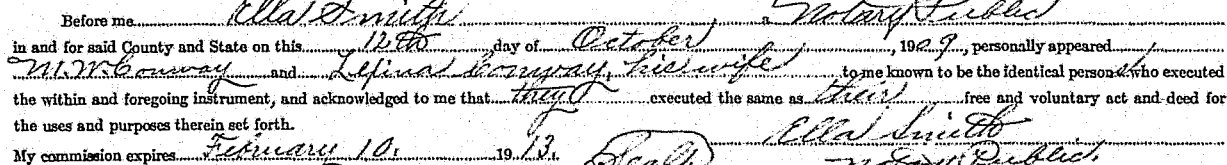 Before me Ella Smith a Notary Public
in and for said County and State on this 12th day of October, 1909, personally appeared
M.W. Conway and Lefina Conway, his wife to me known to be the identical persons who executed
the within and foregoing instrument, and acknowledged to me that they executed the same as their free and voluntary act and deed for
the uses and purposes therein set forth.
Ella Smith
My commission expires February 10. 1913. (Seal) Notary Public